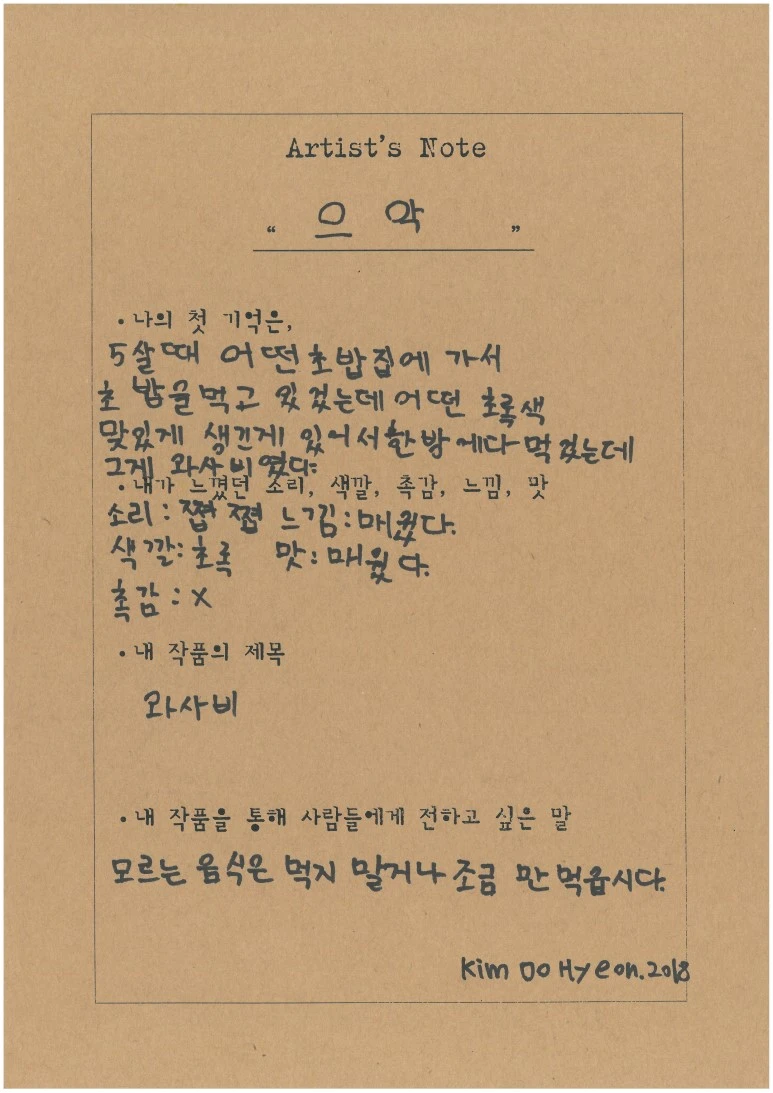 Artist's Note
“ 으 악 ”
• 나의 첫 기억은,
5살때 어떤 초밥집에 가서
초 밥을 먹고 있었는데 어떤 초록색
맞있게 생긴게 있어서 한방에다 먹었는데
그게 와사비였다.
• 내가 느꼈던 소리, 색깔, 촉감, 느낌, 맛
소리 : 쩝 쩝 느낌 : 매웠다.
색깔 : 초록 맛 : 매웠다.
촉감 : X
• 내 작품의 제목
와사비
• 내 작품을 통해 사람들에게 전하고 싶은 말
모르는 음식은 먹지 말거나 조금 만 먹읍시다.
Kim DO Hyeon.2018